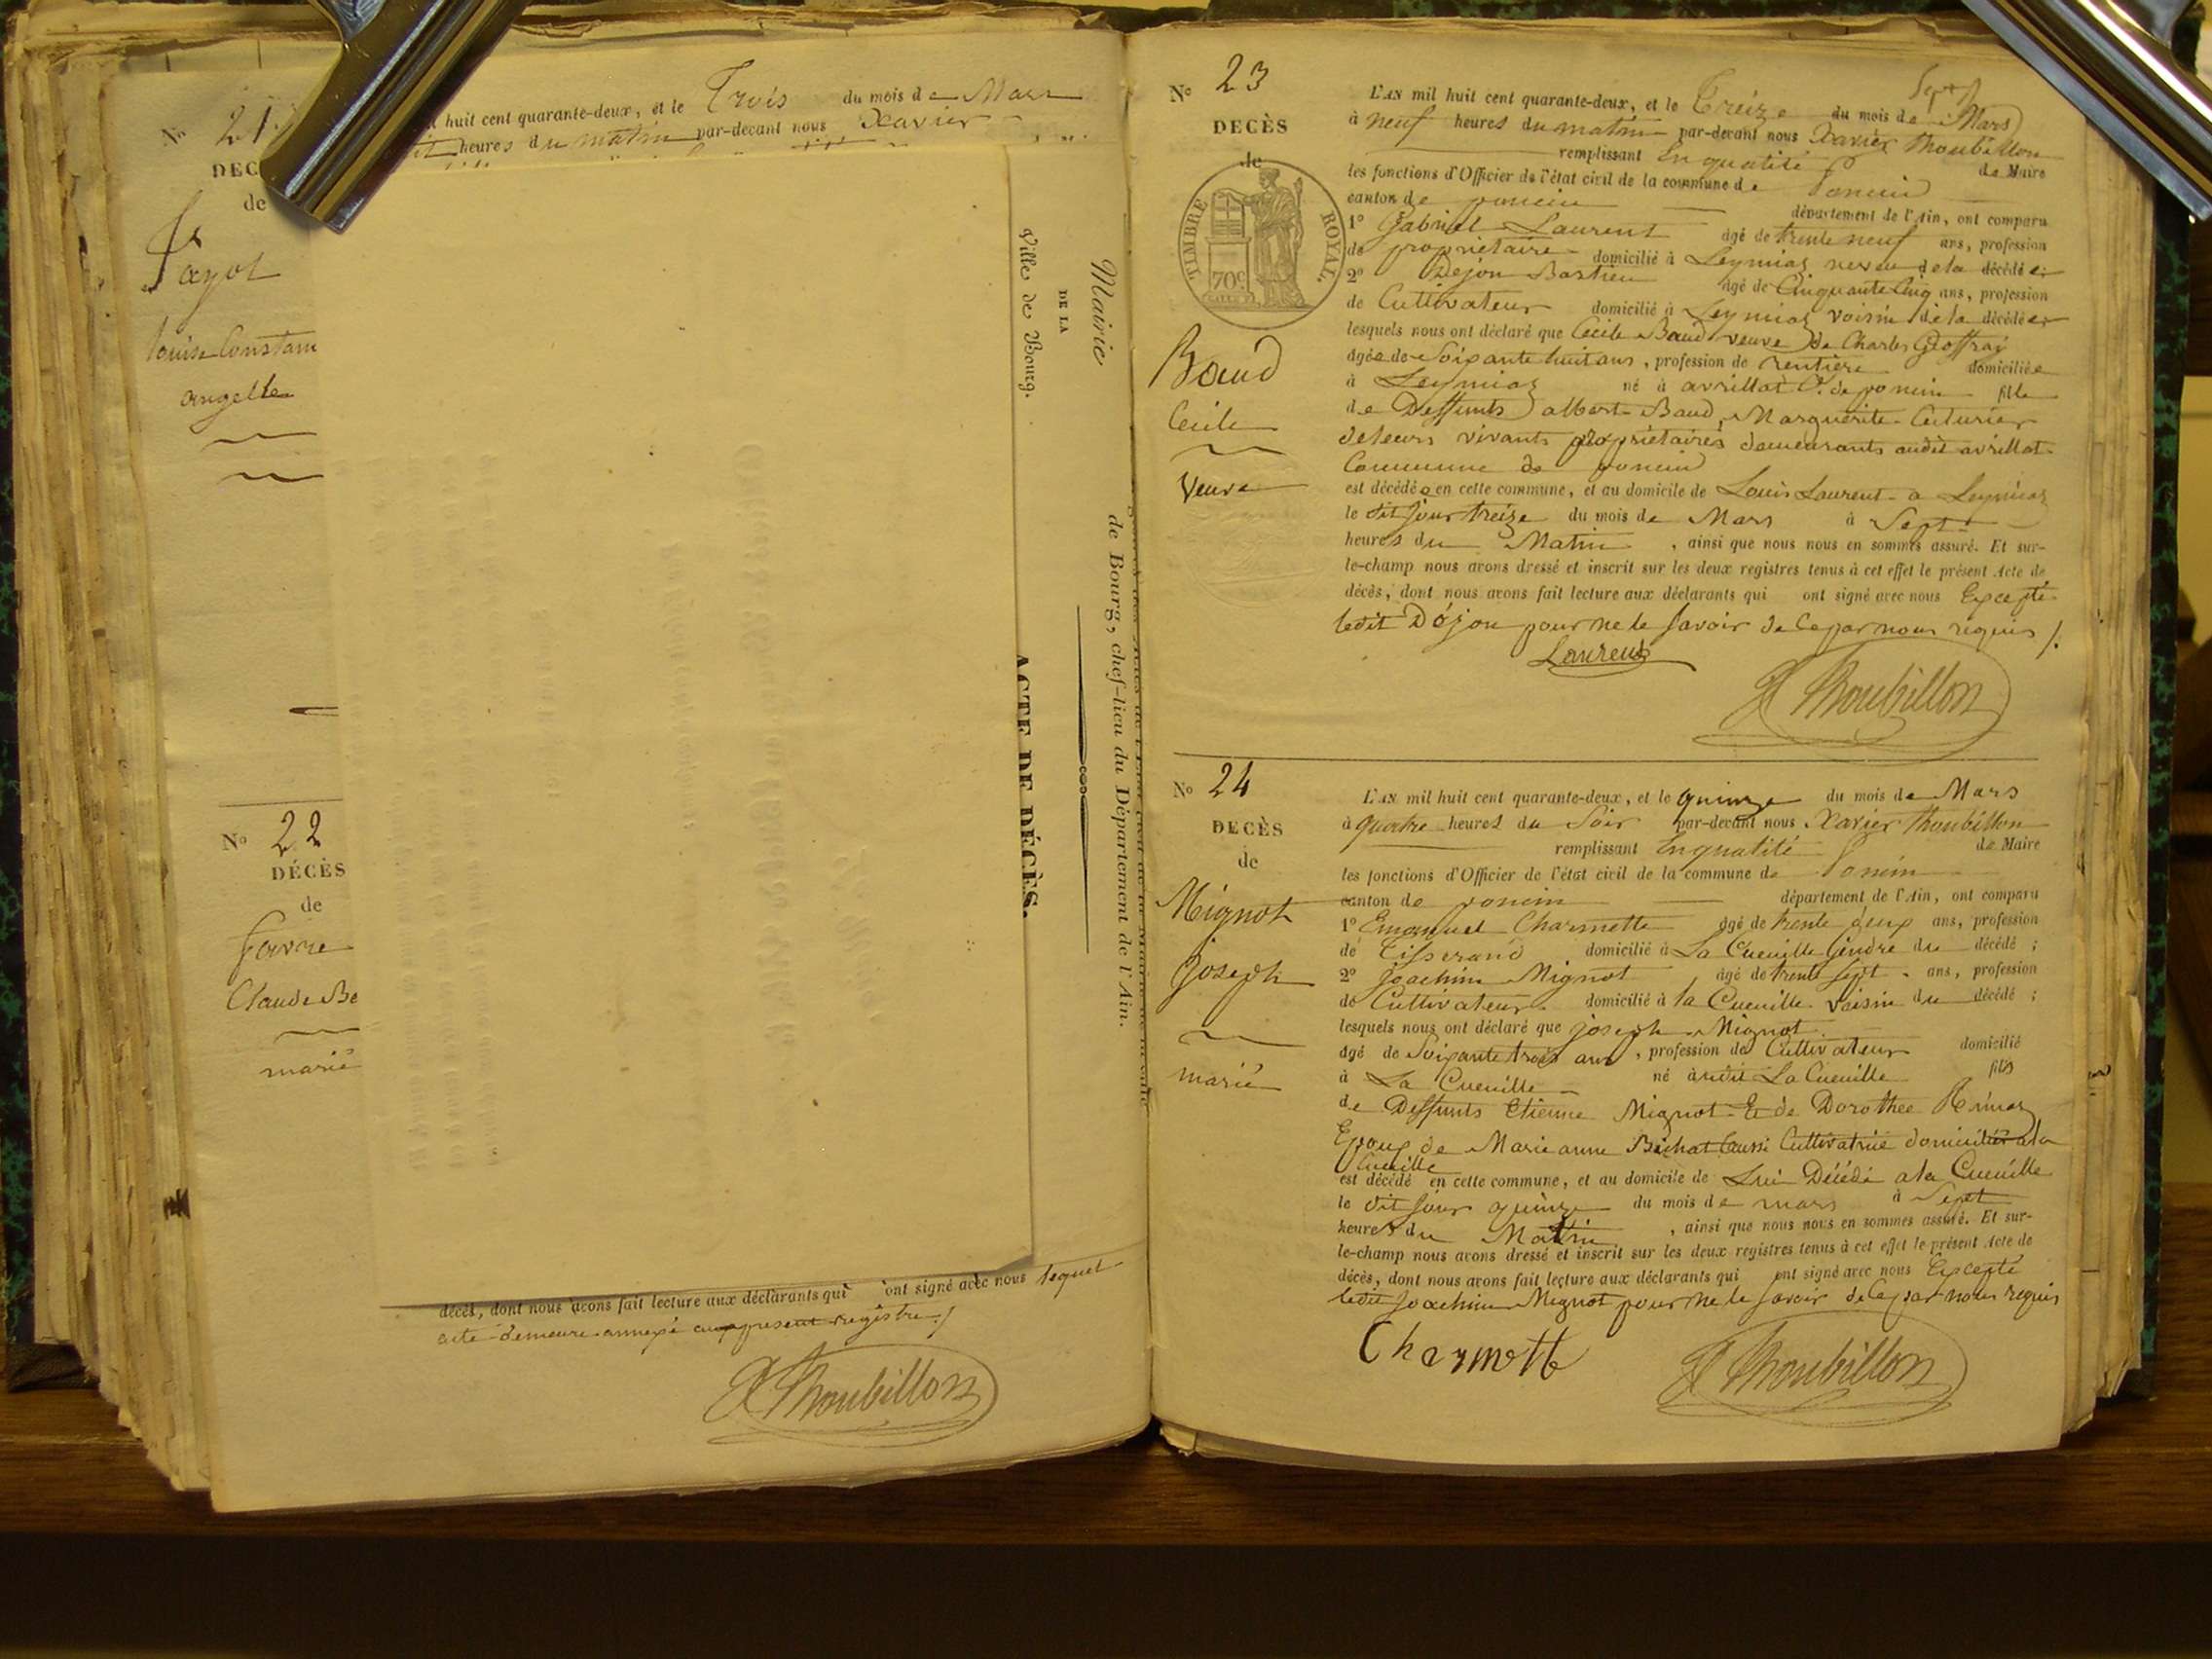 No 21
huit cent quarante-deux, et le Trois du mois de Mars
heures du matin par-devant nous Xavier
DEC
de
Payot
louise Constan
angelle
Mairie
DE LA
Ville de Bourg.
de Bourg, chef-lieu du Département de l'Ain.
ACTE DE DÉCÈS.
No 22
DÉCÈS
de
favre
Claude Be
marié
décès, dont nous avons fait lecture aux déclarants qui ont signé avec nous lequel
acte demeure annexé au present registre ./
X Thoubillon
No 23
DECÈS
de
TIMBRE ROYAL
70c.
Baud
Cecile
Veuve
L'AN mil huit cent quarante-deux, et le Treize du mois de Mars
à neuf heures du matin par-devant nous Xavier Thoubillon
remplissant En qualité de Maire
les fonctions d'Officier de l'état civil de la commune de Poncin
canton de poncin département de l'Ain, ont comparu
1o Gabriel Laurent agé de trente neuf ans, profession
de propriétaire domicilié à Leymiaz neveu de la décédée;
2o Dejou Bastien agé de Cinquante Cinq ans, profession
de Cultivateur domicilié à Leymiaz voisin de la décédée;
lesquels nous ont déclaré que Cecile Baud veuve de Charles Geoffray
agée de Soixante huit ans, profession de rentiere domiciliée
à Leymiaz né à avrillat Cne de poncin fille
de Deffunts albert Baud, Marguerite
de leurs vivants propriétaires demeurants audit avrillat
Commune de poncin
est décédée en cette commune, et au domicile de Louis Laurent a Leymiaz
le dit jour treize du mois de Mars à Sept
heures du Matin, ainsi que nous nous en sommes assuré. Et sur-
le-champ nous avons dressé et inscrit sur les deux registres tenus à cet effet le présent Acte de
décès, dont nous avons fait lecture aux déclarants qui ont signé avec nous Excepté
ledit Dejou pour ne le savoir de Ce par nous requis ./.
Laurent
X Thoubillon
No 24
DECÈS
de
Mignot
joseph
marié
L'AN mil huit cent quarante-deux, et le quinze du mois de Mars
à quatre heures du Soir par-devant nous Xavier Thoubillon
remplissant En qualité de Maire
les fonctions d'Officier de l'état civil de la commune de Poncin
canton de poncin département de l'Ain, ont comparu
1o Emanuel Charmette agé de trente deux ans, profession
de Tisserand domicilié à La Cueuille Gendre du décédé;
2o joachim Mignot agé de trente sept ans, profession
de Cultivateur domicilié à la Cueuille voisin du décédé;
lesquels nous ont déclaré que joseph Mignot
agé de Soixante trois ans, profession de Cultivateur domicilié
à La Cueuille né audit La Cueuille fils
de Deffunts Etienne Mignot Et de Dorothee
Epoux de Marie anne Bichat aussi Cultivatrice domiciliée a la
Cueuille
est décédé en cette commune, et au domicile de Lui Décédé a la Cueuille
le dit jour quinze du mois de mars à Sept
heures du Matin, ainsi que nous nous en sommes assuré. Et sur-
le-champ nous avons dressé et inscrit sur les deux registres tenus à cet effet le présent Acte de
décès, dont nous avons fait lecture aux déclarants qui ont signé avec nous Excepté
ledit Joachim Mignot pour ne le savoir de Ce par nous requis
Charmette
X Thoubillon